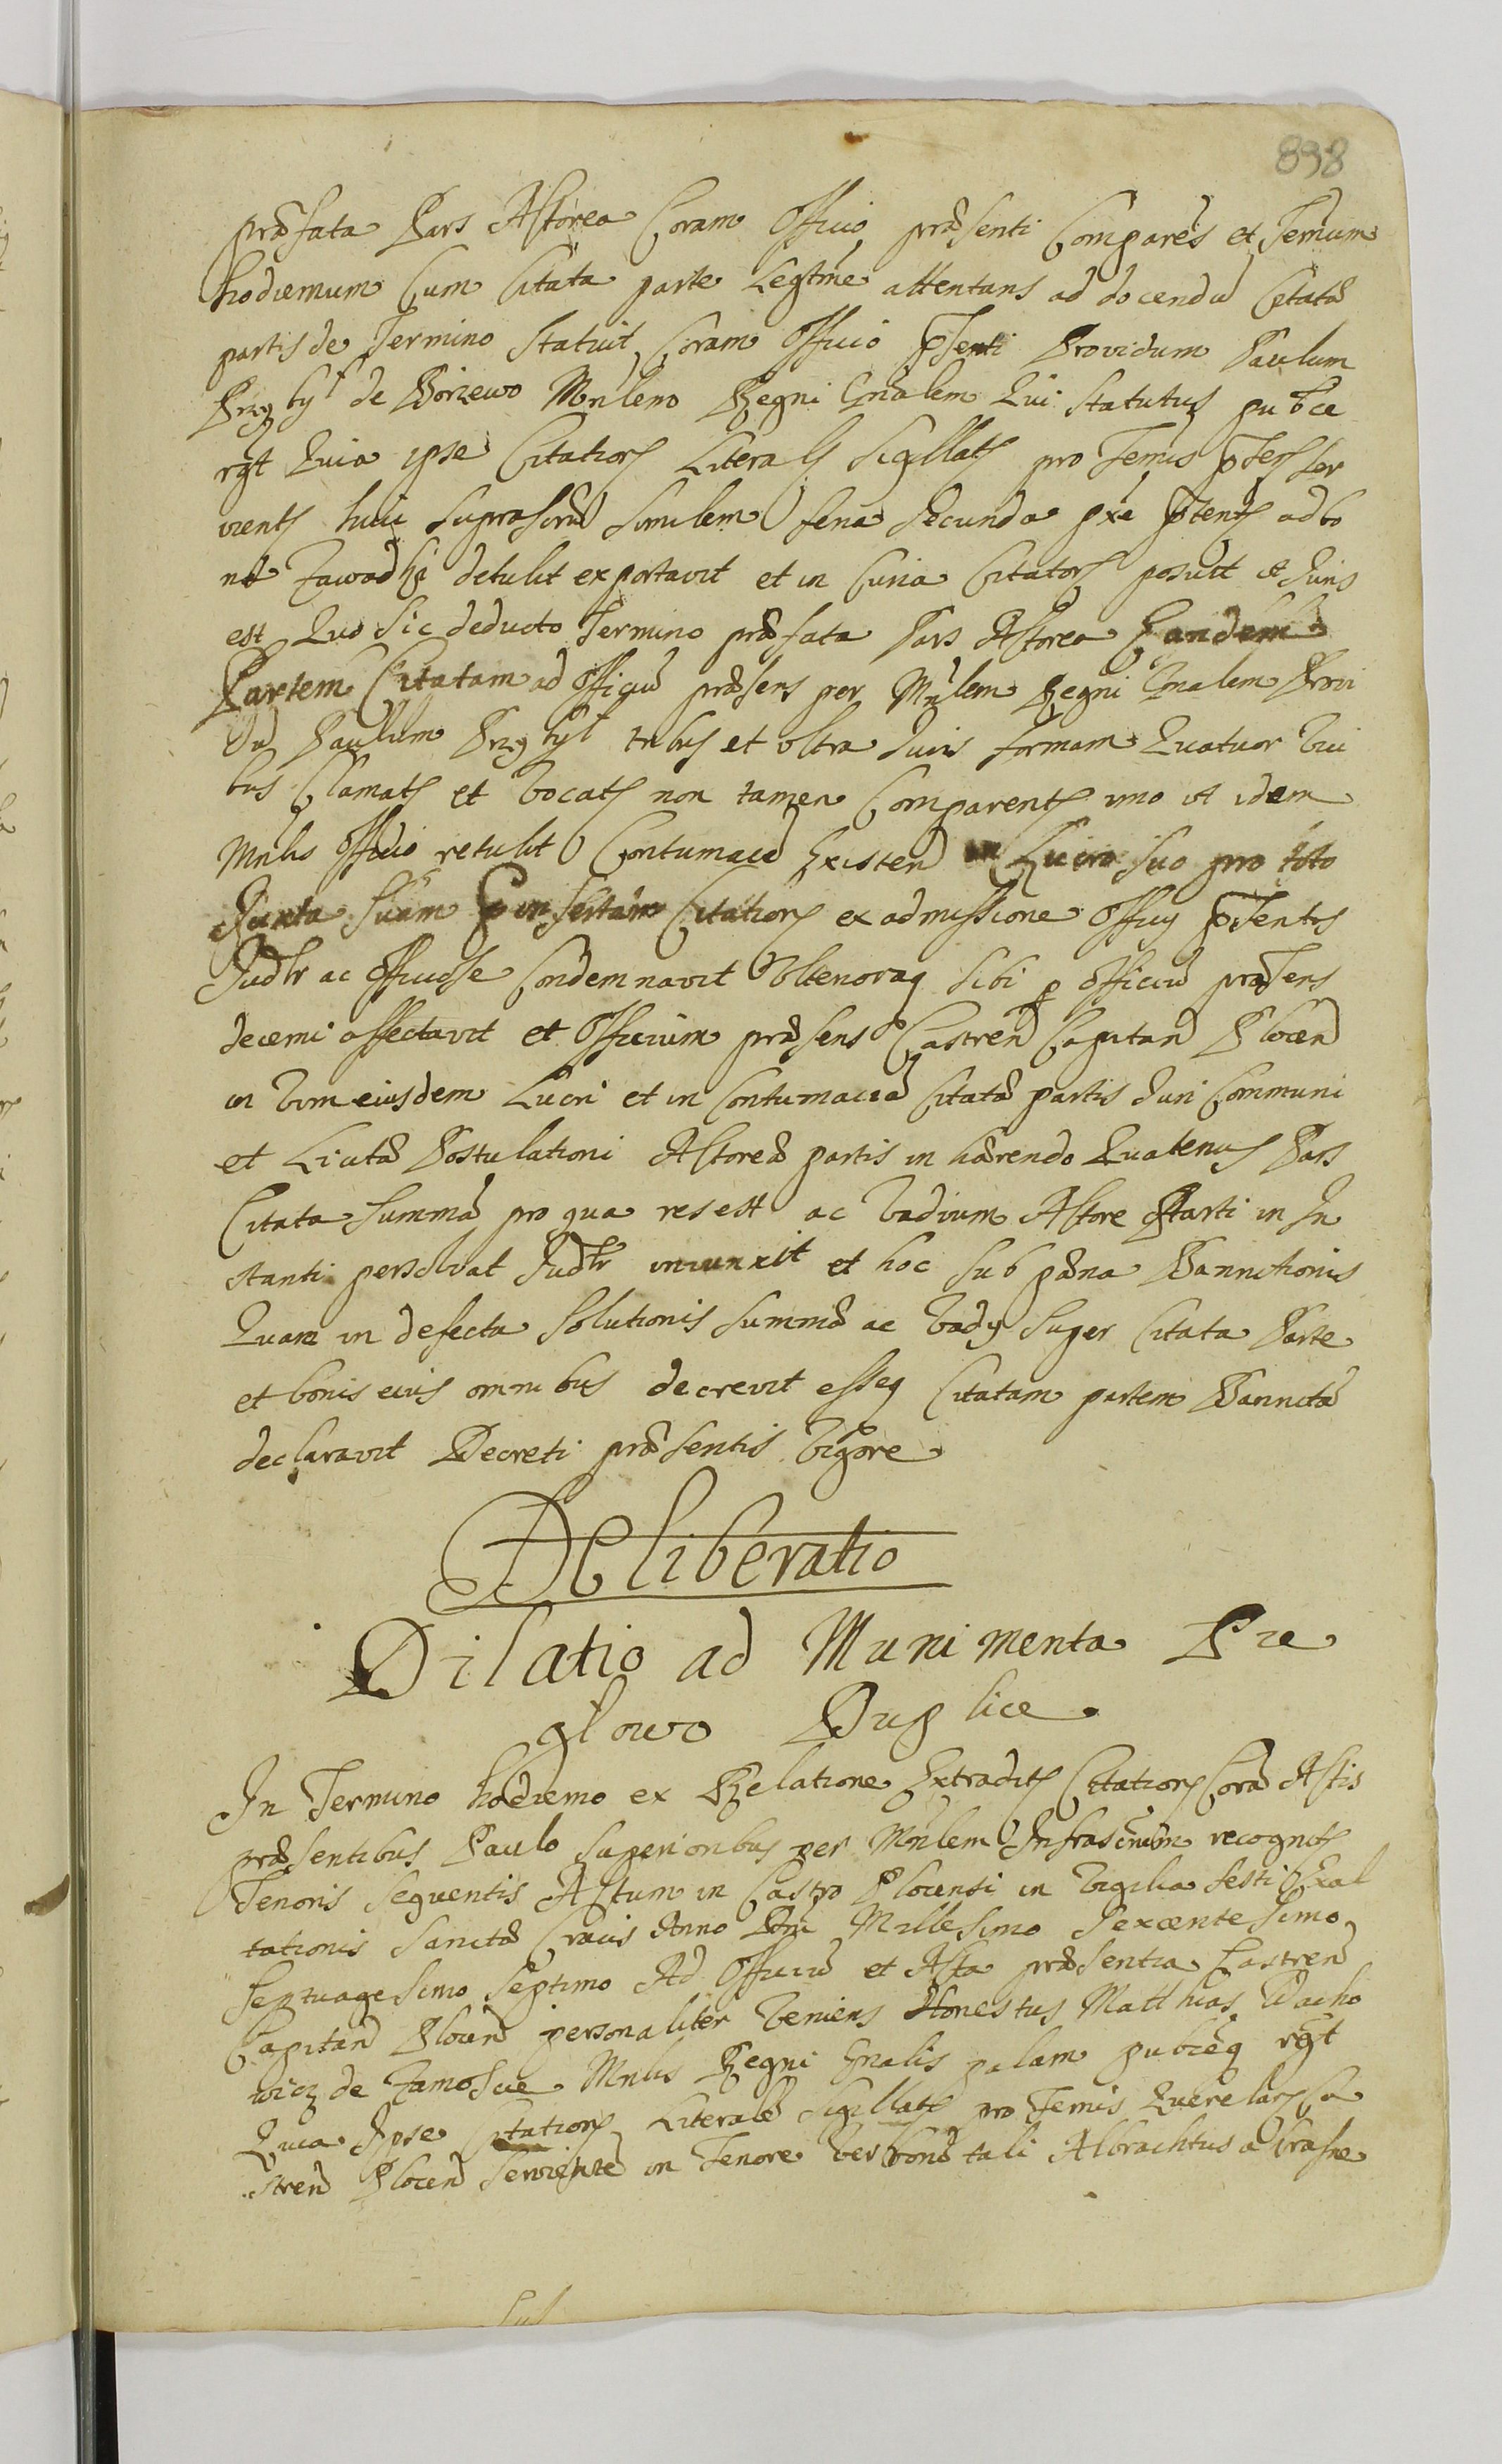 898
præfata Pars Actorea Coram Officio præsenti Compares et Termum
hodiernum Cum Citata parte Legtme attentans ad docendū Citatæ
partis de Termino Statuit Coram Officio pſenti Providum Paulum
Przybyſ de Borzewo Mnlem Regni Gnalem Qui Statutus pubce
rgt Quia ipse Citations Literals Sigillats pro Temis
vients huic suprascrtæ similem fena Secunda pxa ad bo
na Zawadki detulit exportavit et in Curia Citators posuit et Juris
est Quo Sic deducto Termino præfata Pars Actorea Eandem
Partem Citatam ad Officiū præsens per Mnlem Regni Gnalem Provi
dū Paulum Przybył tribus et ultra Juris formam Quatuor Vici
bus Clamats et Vocats non tamen Comparents imo ut idem
Mnlis Officio retulit Contumacē Existen in Lucro suo pro toto
Juxta suam insertam Citations ex admissione Officy pſentis
Judlr ac Officiose Condemnavit sibi p Officiū præsens
decerni affectavit et Officium præsens Castren Capitan Plocen
in Vim eiusdem Lucri et in Contumaciā Citatæ partis Juri Communi
et Licitæ Postulationi Actoreæ partis in hærendo Quatenus Pars
Citata Summā pro qua res est ac Vadium Actore Parti in In
stanti persolvat Judlr iniunxit et hoc sub pæna Bannitionis
Quam in defectu Solutionis Summæ ac Vady Super Citata Parte
et bonis eius omnibus decrevit esseq Citatam partem Bannitā
declaravit Decreti præsentis Vigore
Deliberatio
Dilatio ad Munimenta Pre
głowo Duplice
In Termino hodierno ex Relatione Extradits Citations Corā Actis
præsentibus Paulo superioribus per Mnlem Infrascrium recognits
Tenoris Sequentis Actum in Castro Plocensi in Vigilia festi Exal
tationis Sanctæ Crucis Anno Dni Millesimo Sexcentesimo
Septuagesimo Septimo Ad Officiū et Acta præsentia Castren
Capitan Plocen personaliter Veniens Honestus Matthias Wacho
wicz de Zamoscie Mnlis Regni Gnalis palam pubceq rgt
Quia Ipse Citations Literale Sigillats pro Temis Querelars Ca
stren Plocen Servientē in Tenore Verborū tali Albrachtus a Crasne